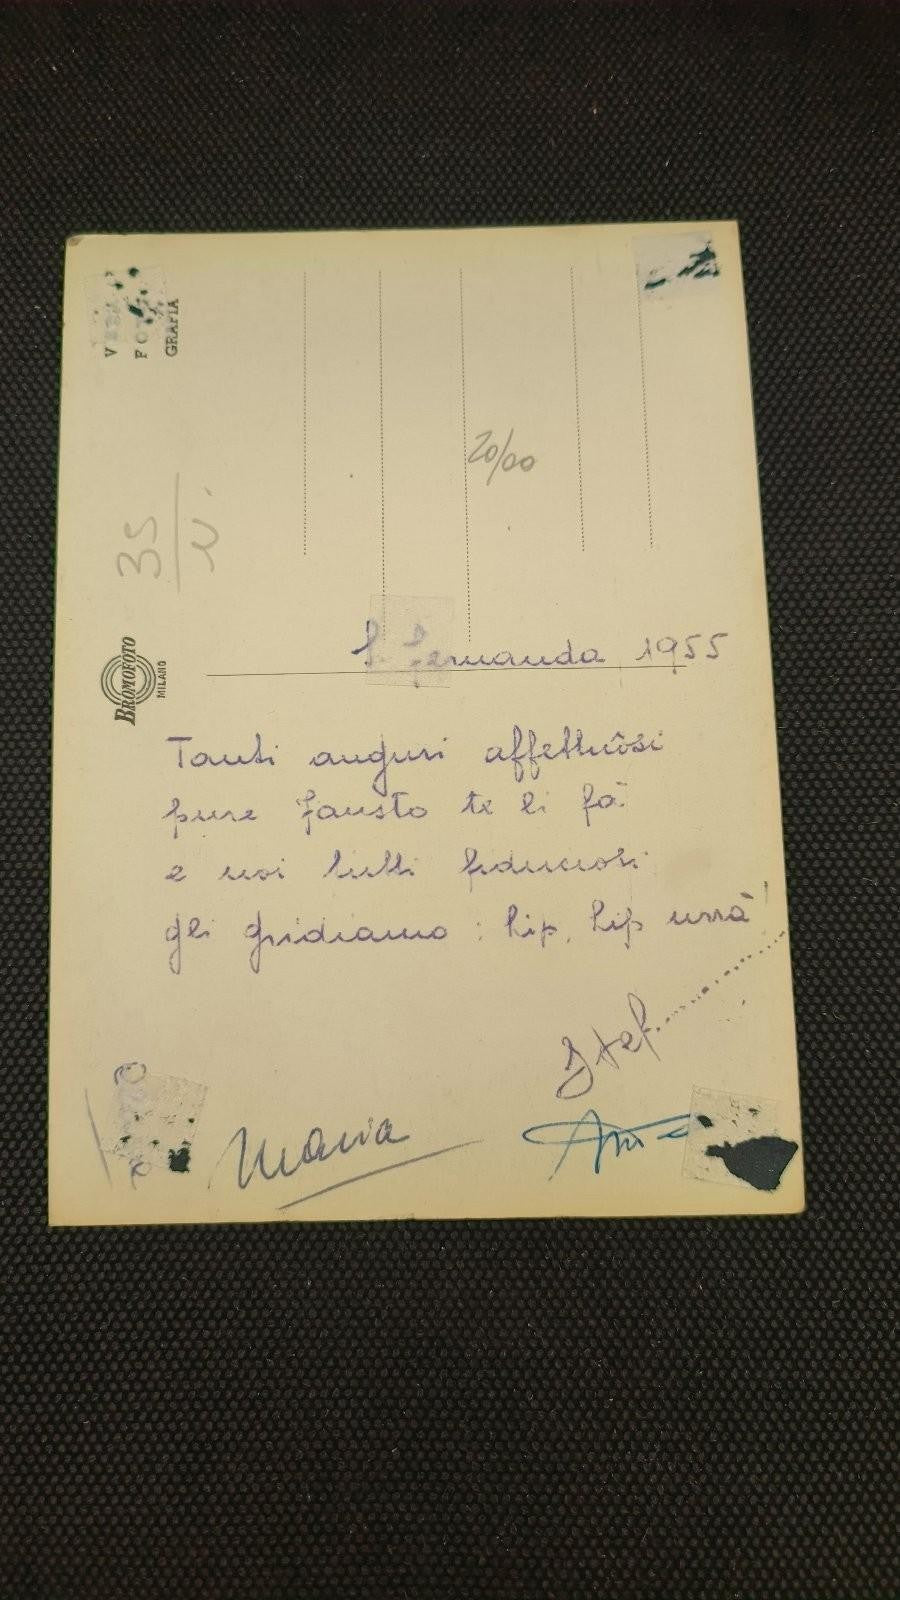 VERA
FOTO
GRAFIA
20/00
35
BROMOFOTO
MILANO
S. Fernanda 1955
Tanti auguri affettuosi
pure Fausto te li fà
e noi tutti fiduciosi
gli gridiamo: hip, hip urrà!
Stef..........
Maria